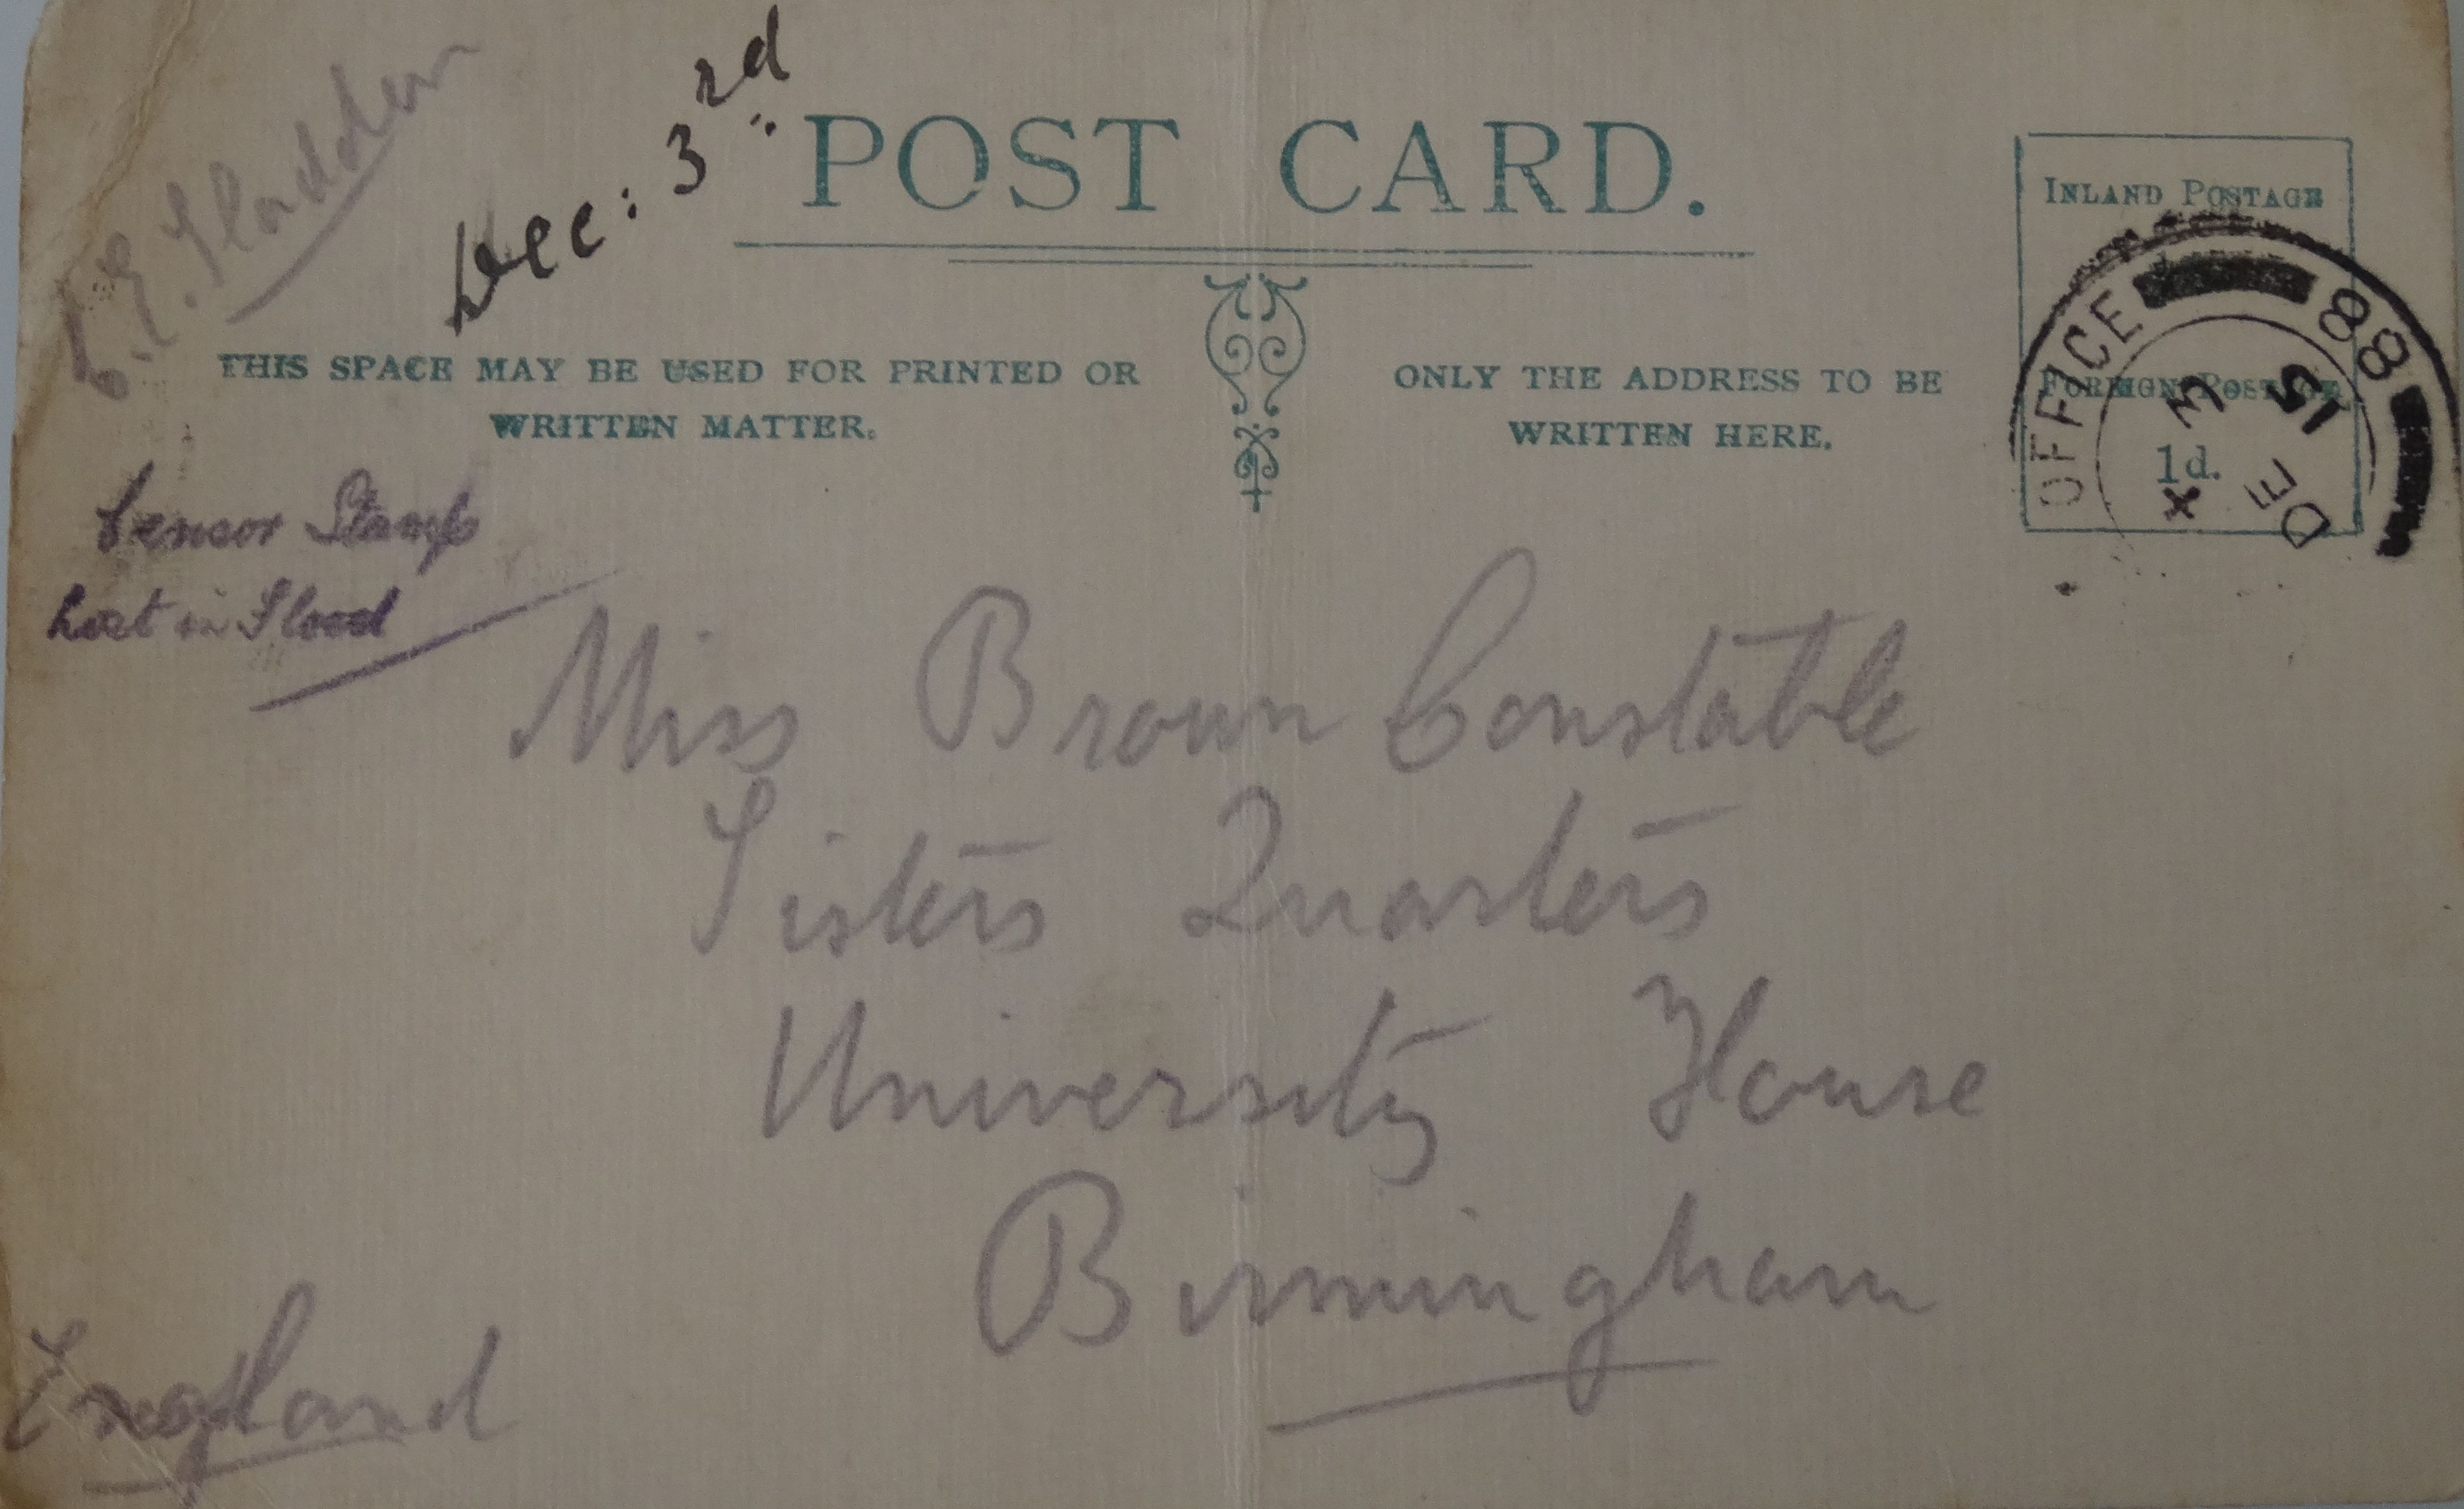 C.E. Sladden
Dec: 3rd
POST CARD.
THIS SPACE MAY BE USED FOR PRINTED OR
WRITTEN MATTER.
ONLY THE ADDRESS TO BE
WRITTEN HERE.
INLAND POSTAGE
FOREIGN POSTAGE
1d.
OFFICE 88
X
3 DE
15
Censor Stamp
Lost in Flood
Miss Brown Constable
Sisters Quarters
University House
Birmingham
England